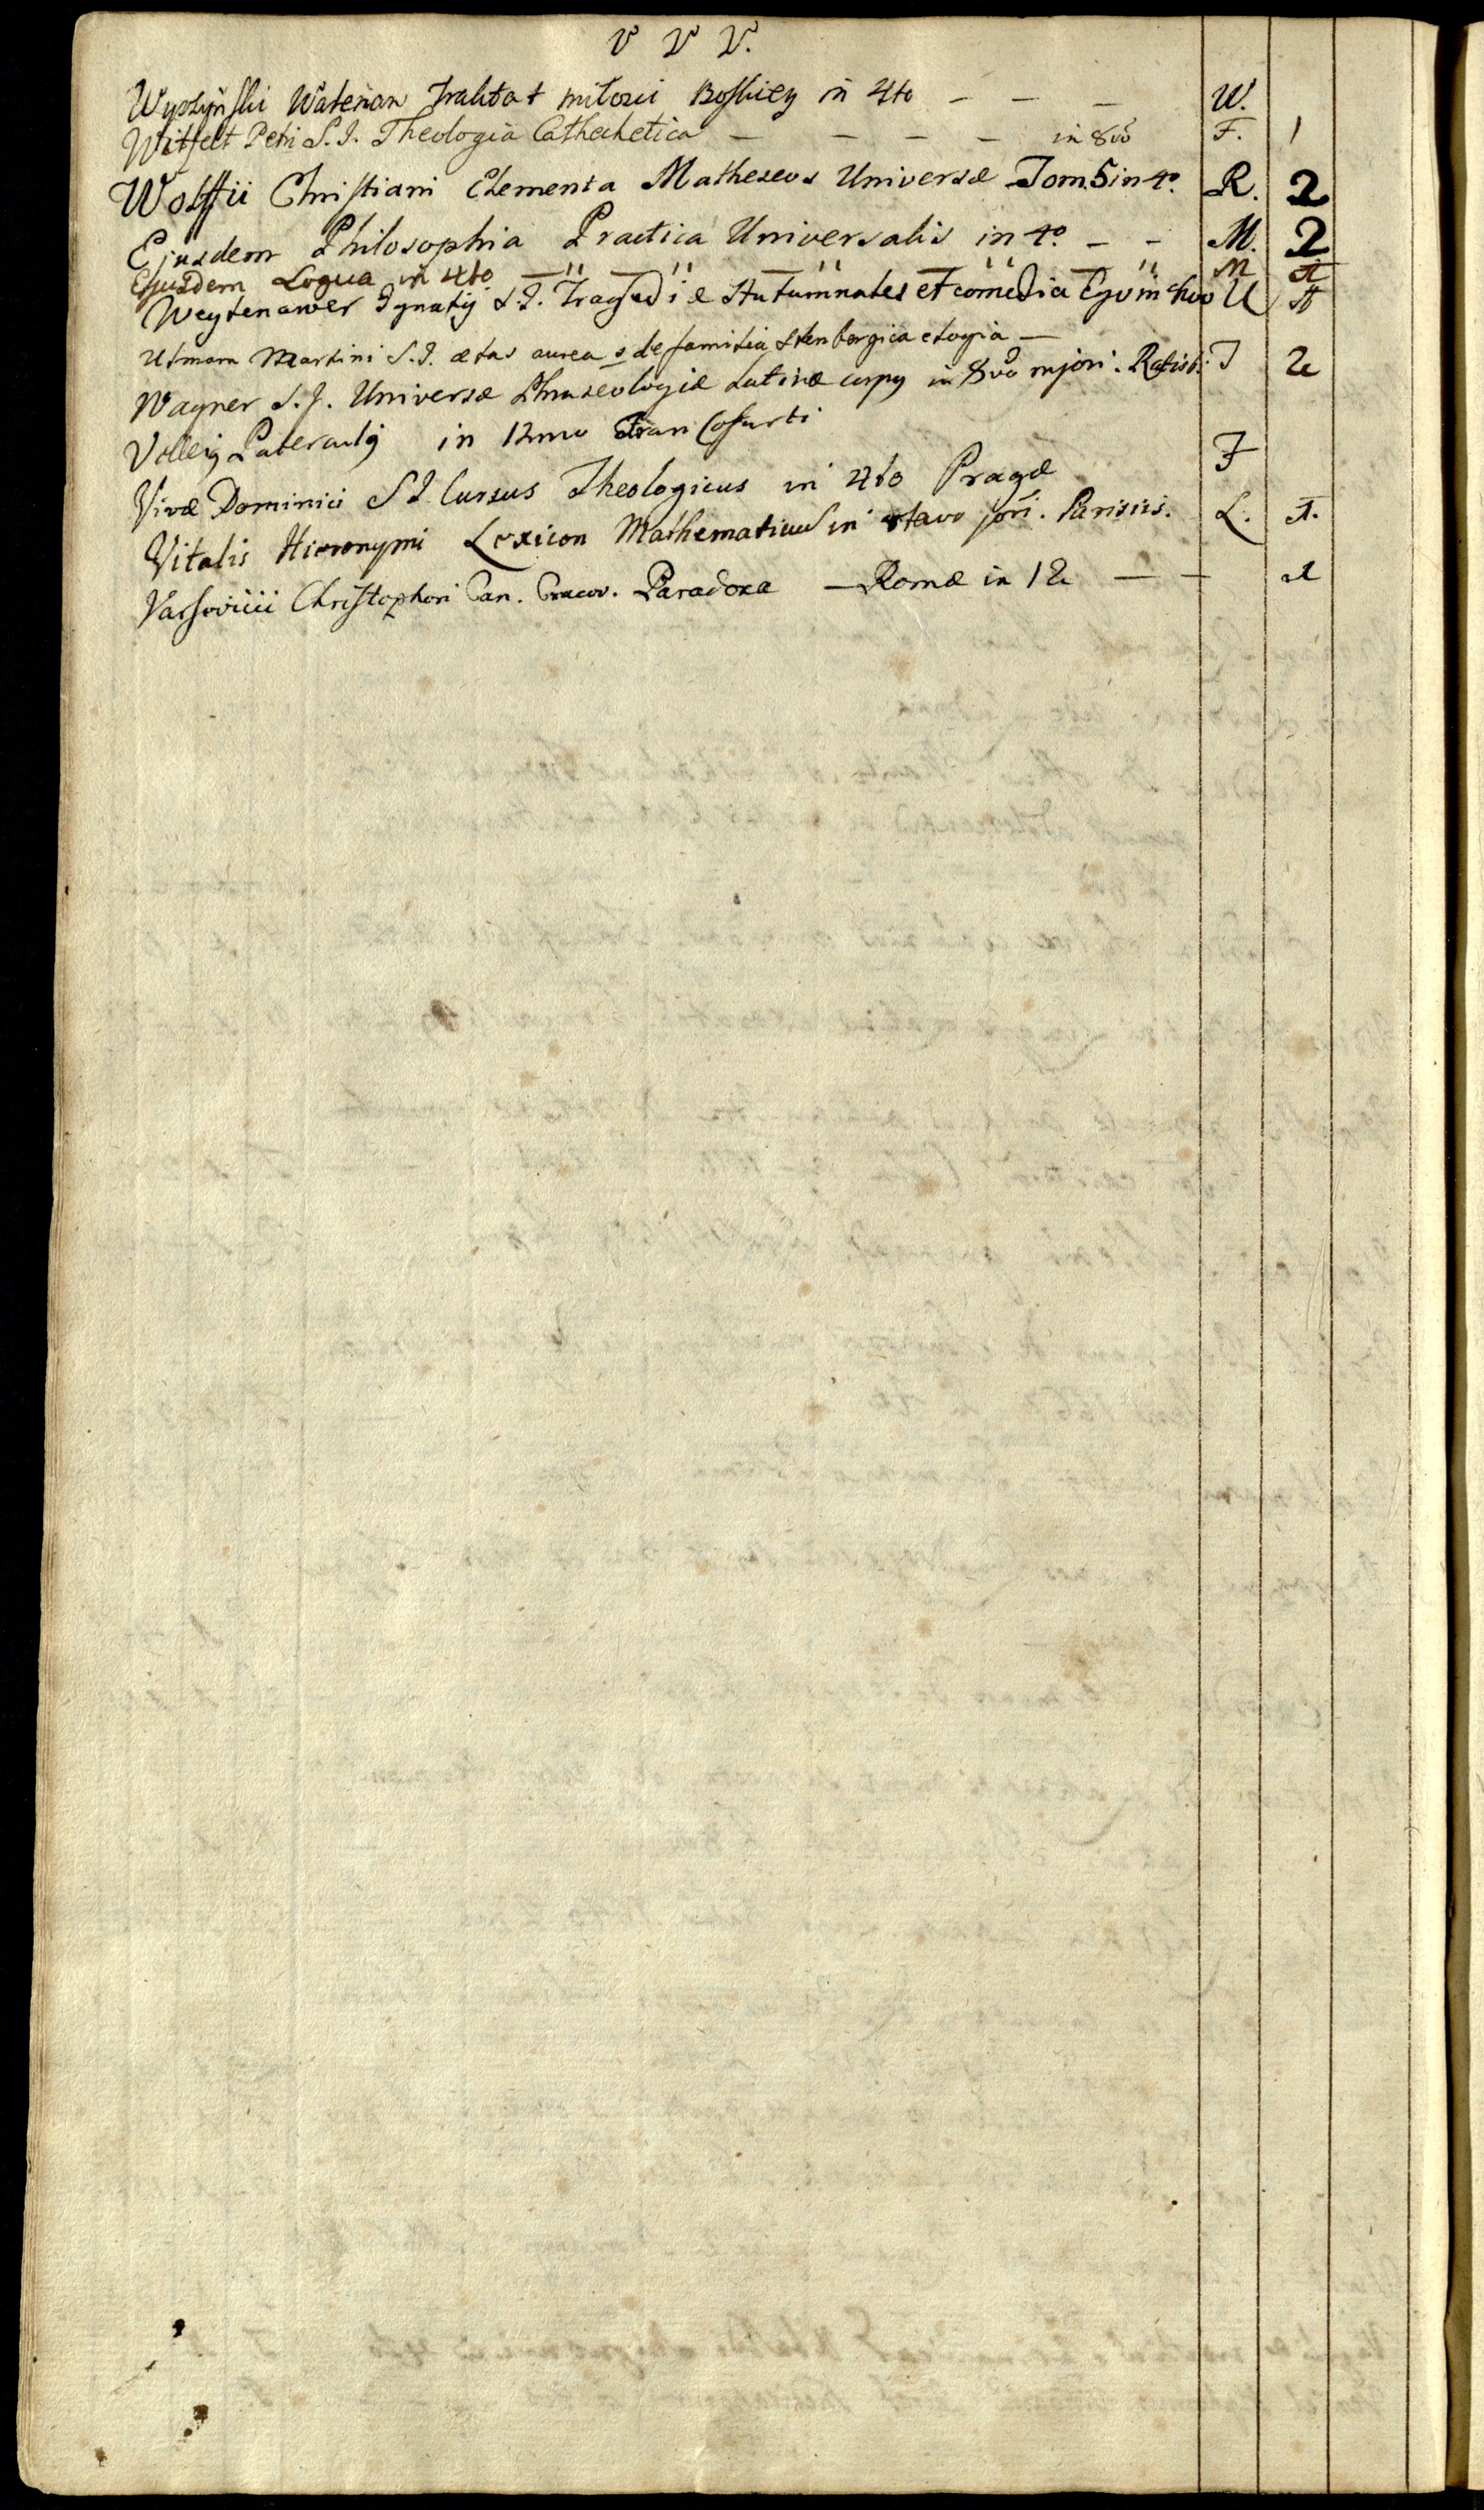 V V V.
Wyszyński Walerian Traktat miłości Boskiey in 4to — — — W.
Witfelt Petri S. I. Theologia Cathechetica — — — — in 8vo F. 1
Wolffii Christiani Elementa Matheseos Universæ Tom. 5 in 4o. R. 2
Ejusdem Philosophia Practica Universalis in 4o. — — M. 2
Ejusdem Logica in 4to — " — " — " — " — " M
Weytenawer Ignatij S. I. Tragædiæ Autumnales et comedia Ego in 8vo U
Utman Martini S. I. ætas aurea s de familia Stenbergica elogia —
Wagner S. J. Universæ Phraseologiæ Latinæ corpg in 8vo mjori. Ratisb: I 2
Velleij Paterculij in 12mo Francofurti
Vivæ Dominici S I Cursus Theologicus in 4to Pragæ F
Vitalis Hieronymi Lexicon Mathematicum in octavo jori. Parisiis. L.
Varsoviiii Christophori Can. Cracov. Paradoxa — Romæ in 12 — —